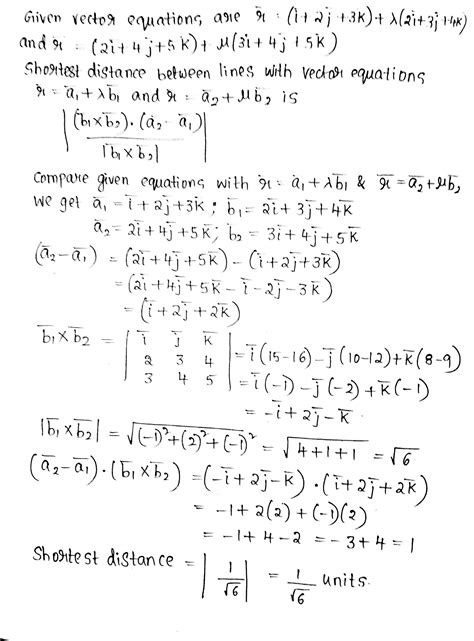 Given vector equations are r̄ = (i+2j+3k)+λ(2i+3j+4k)
and r = (2i+4j+5k)+ μ(3i+4j+5k)
Shortest distance between lines with vector equations
r = ā₁+λb̄₁ and r = ā₂+μb̄₂ is
| (b̄₁×b̄₂)·(ā₂-ā₁) / |b̄₁×b̄₂| |
Compare given equations with r = ā₁+λb̄₁ & r̄ = ā₂+μb̄₂
We get ā₁ = ī+2j̄+3k̄ ; b̄₁ = 2ī+3j̄+4k̄
ā₂ = 2ī+4j̄+5k̄; b₂ = 3ī+4j̄+5k̄
(ā₂-ā₁) = (2ī+4j̄+5k̄) - (ī+2j̄+3k̄)
= (2ī+4j̄+5k̄ - ī - 2j̄ - 3k̄)
= (ī+2j̄+2k̄)
b̄₁×b̄₂ = | ī j̄ k̄ |
| 2 3 4 | = ī(15-16) - j̄(10-12) + k̄(8-9)
| 3 4 5 | = ī(-1) - j̄(-2) + k̄(-1)
= -ī+2j̄-k̄
|b̄₁×b̄₂| = √((-1)²+(2)²+(-1)²) = √(4+1+1) = √6
(ā₂-ā₁)·(b̄₁×b̄₂) = (-ī+2j̄-k̄)·(ī+2j̄+2k̄)
= -1+2(2)+(-1)(2)
= -1+4-2 = -3+4 = 1
Shortest distance = | 1/√6 | = 1/√6 units.